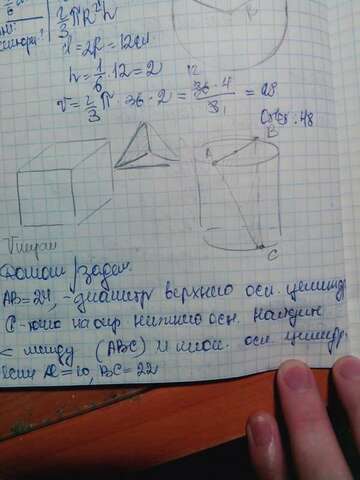 2/3 πR²h
d=2R=12см
h=1/6·12=2
V=2/3 π·36·2=36·4/3=28
Ответ: 48
A
B
C
Домаш/задан
AB=24, -диаметр верхнего осн. цилиндр
C- на окр нижнего осн. найдит
< между (ABC) и плос. осн. цилиндр
если AC=10, BC=22